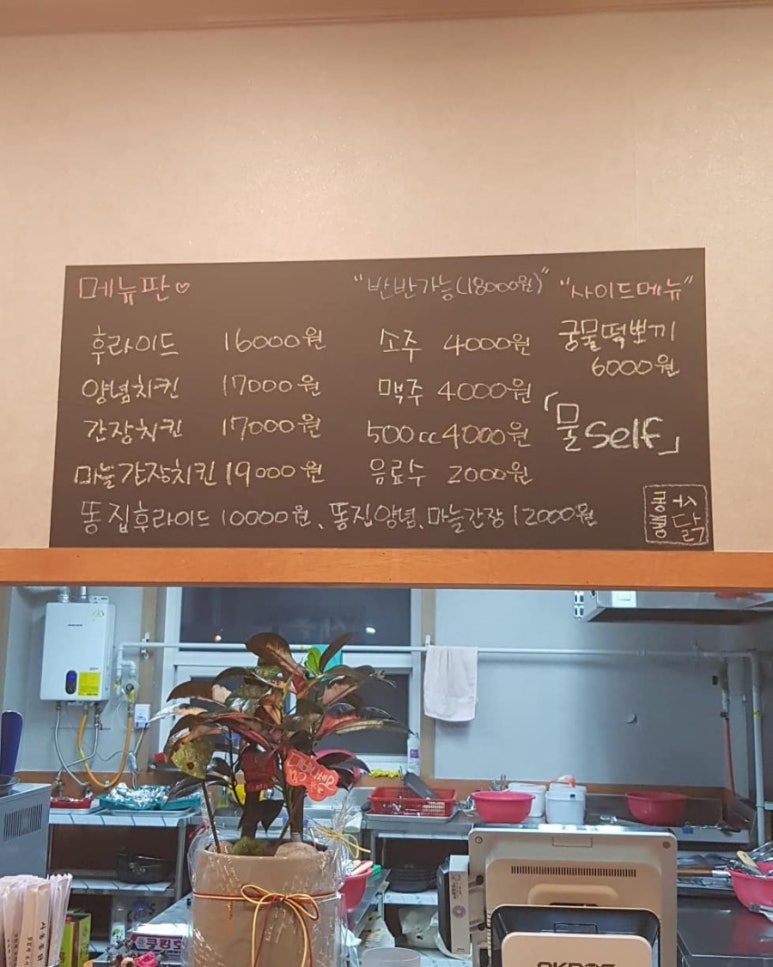 메뉴판♡
"반반가능(18000원)"
"사이드메뉴"
후라이드 16000원
양념치킨 17000원
간장치킨 17000원
마늘간장치킨 19000원
소주 4000원
맥주 4000원
500cc 4000원
음료수 2000원
궁물떡뽀끼
6000원
「물self」
똥집후라이드 10000원、똥집양념、마늘간장 12000원